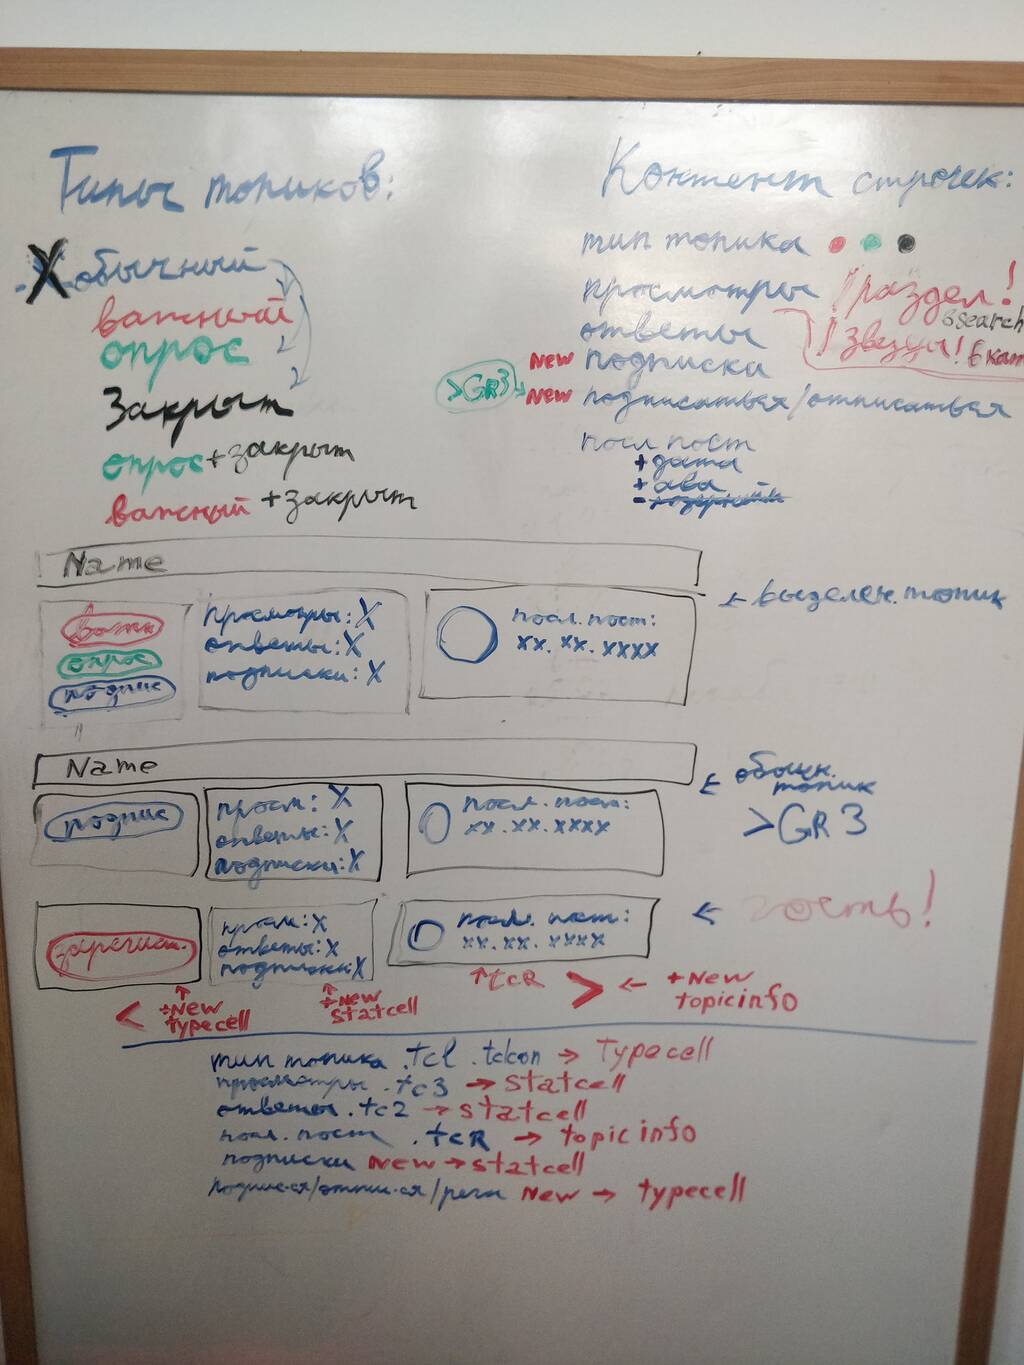 Типы топиков:
X обычный
важный
опрос
Закрыт
опрос + закрыт
важный + закрыт
Контент строчек:
тип топика
просмотры
ответы
New подписки
>GR3 New подписаться/отписаться
посл пост
+ дата
+ ава
! раздел!
! звезды!
Name
важн
опрос
подпис
просмотры: X
ответы: X
подписки: X
посл. пост:
xx. xx. xxxx
← выделен. топик
Name
подпис
просм: X
ответы: X
подписки: X
посл. пост:
xx. xx. xxxx
← обычн.
топик
>GR3
зарегист.
просм: X
ответы: X
подписки: X
посл. пост:
xx. xx. xxxx
← гость!
< ↑ +New
typecell
↑ +New
statcell
↑ tcR
> ← +New
topicinfo
тип топика .tcl .tdcon → Typecell
просмотры .tc3 → statcell
ответы .tc2 → statcell
посл. пост .tcR → topicinfo
подписки New → statcell
New → typecell